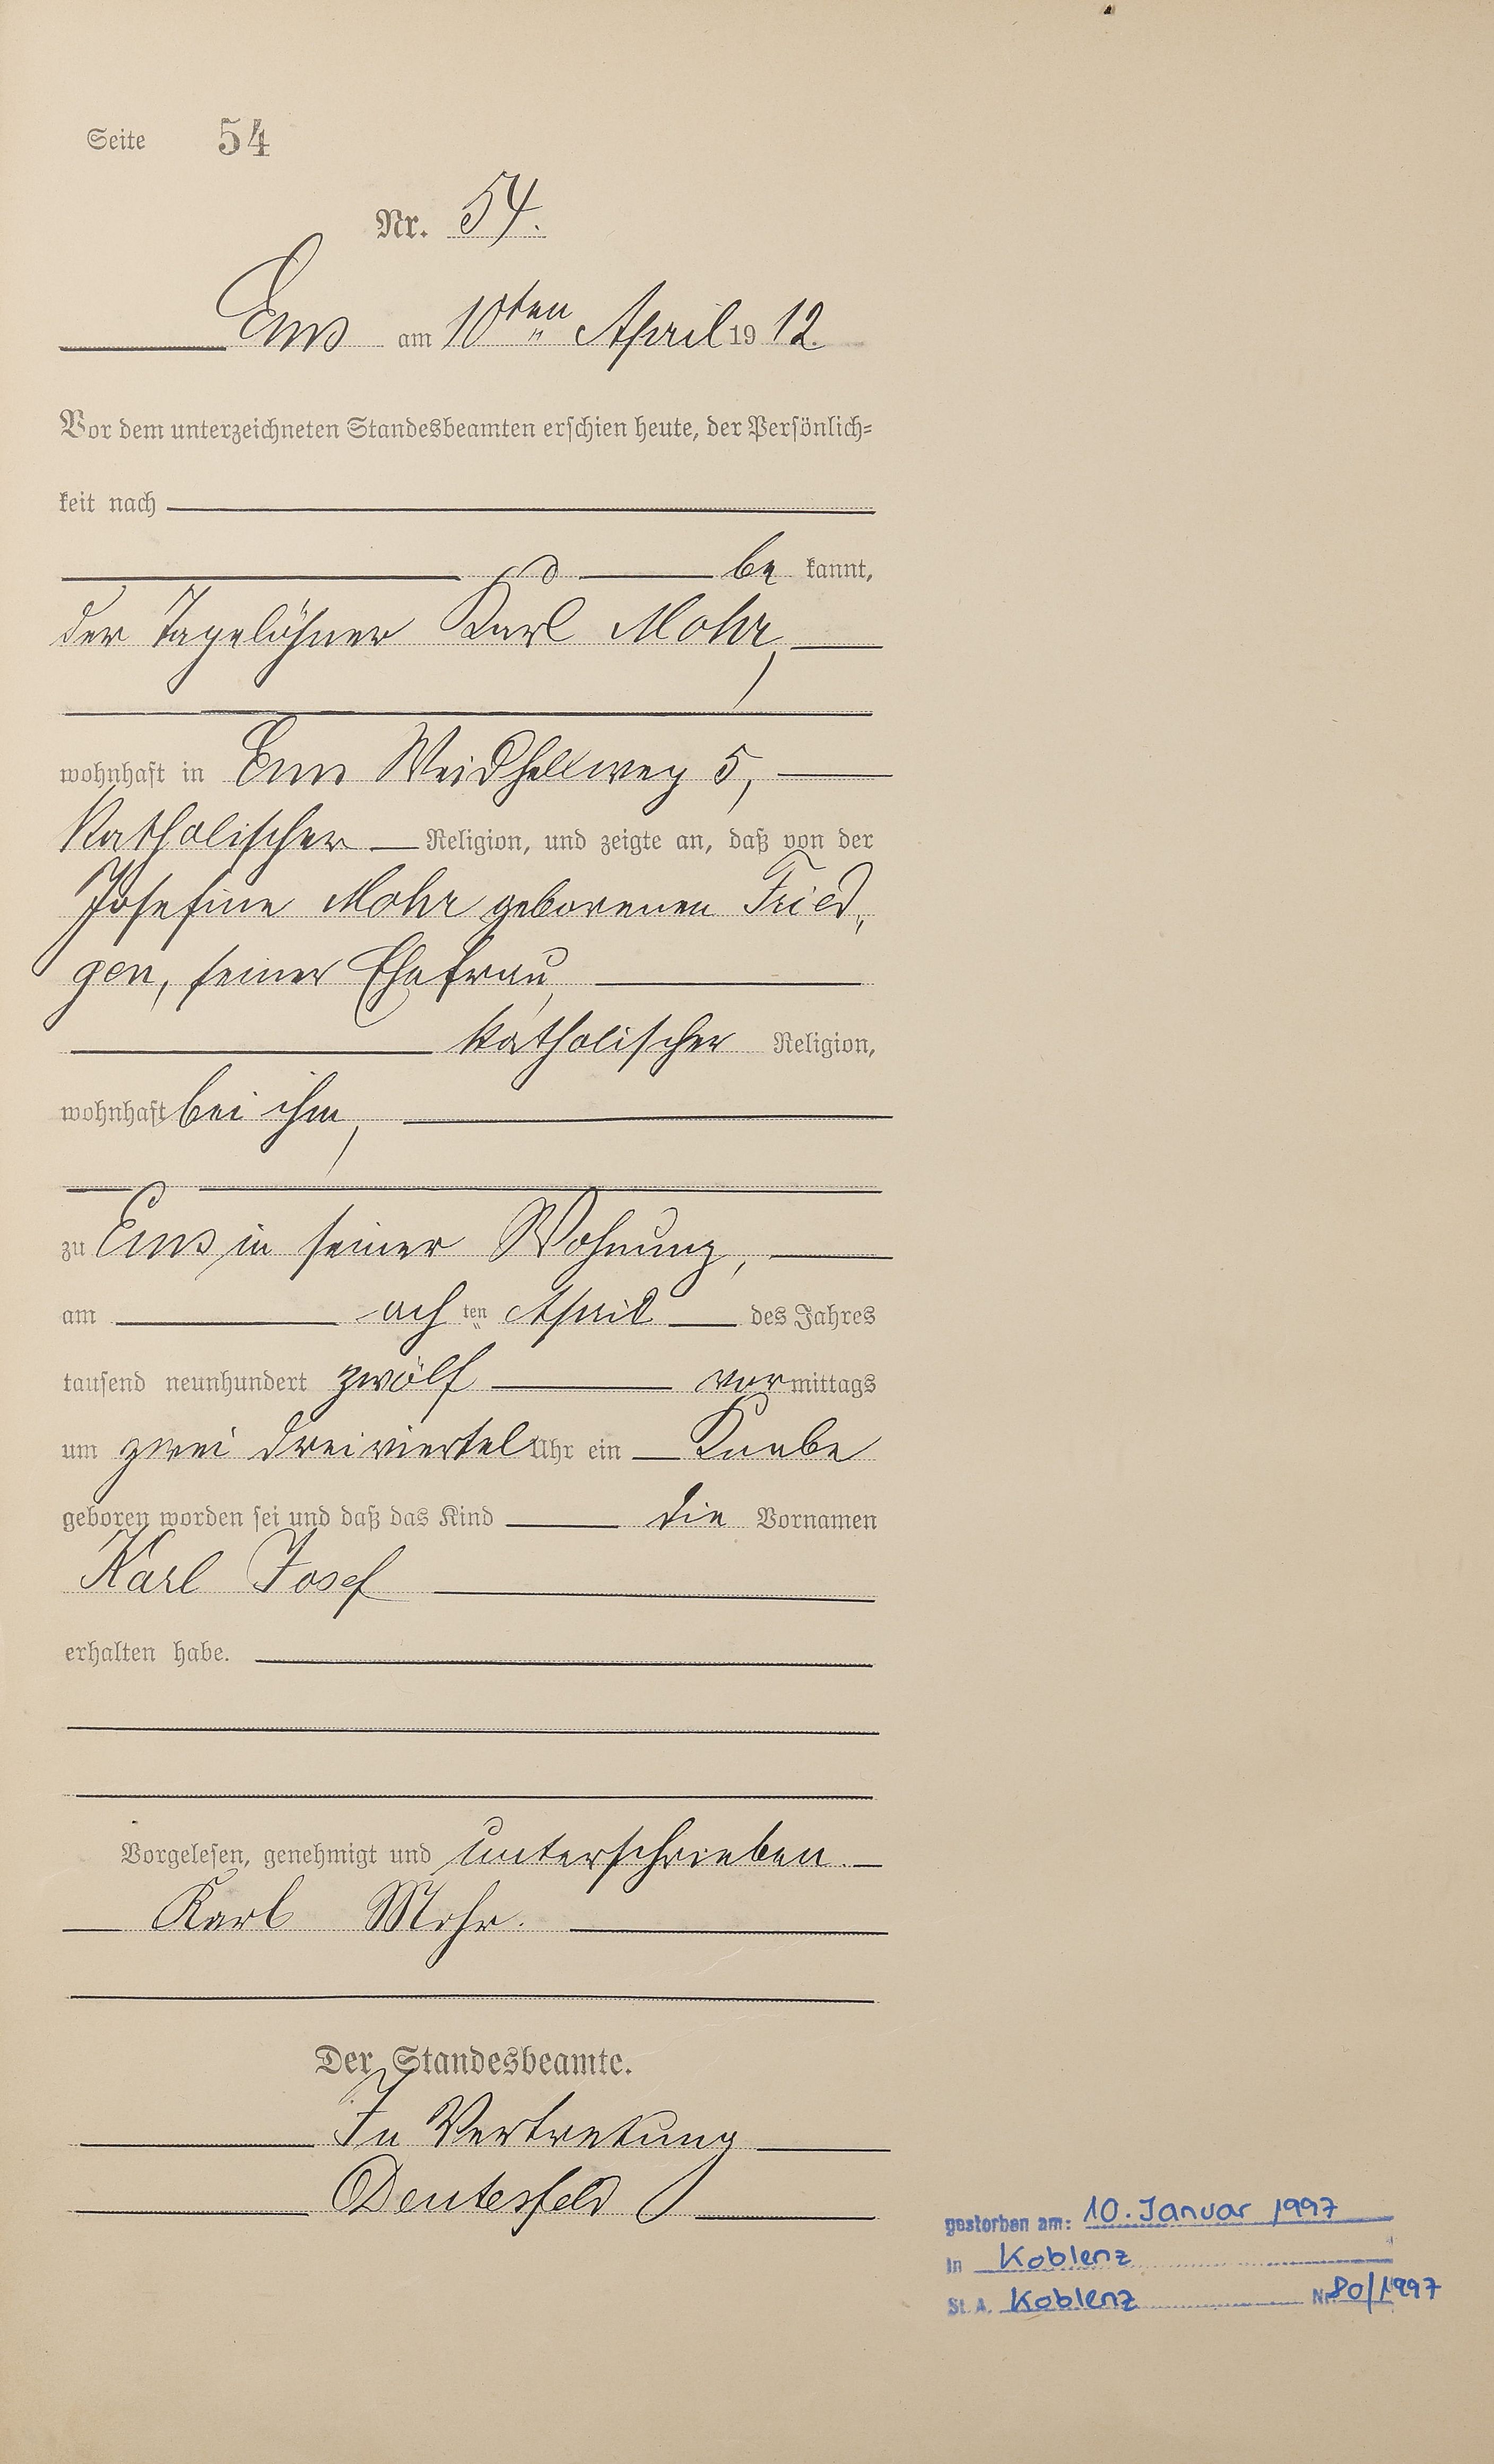 Seite 54
Nr. 54.
Ems am 10ten April 1912.
Vor dem unterzeichneten Standesbeamten erschien heute, der Persönlich-
keit nach
be kannt,
der Tagelöhner Karl Mohr,
wohnhaft in Ems Weidhellweg 5,
katholischer Religion, und zeigte an, daß von der
Josefine Mohr geborenen Fried-
gen, seiner Ehefrau,
katholischer Religion,
wohnhaft bei ihm,
zu Ems in seiner Wohnung,
am ach ten April des Jahres
tausend neunhundert zwölf vormittags
um zwei dreiviertel Uhr ein Knabe
geboren worden sei und daß das Kind die Vornamen
Karl Josef
erhalten habe.
Vorgelesen, genehmigt und unterschrieben.
Karl Mohr.
Der Standesbeamte.
In Vertretung
Deutesfeld
gestorben am: 10. Januar 1997
in Koblenz
St. A. Koblenz Nr. 80/1997